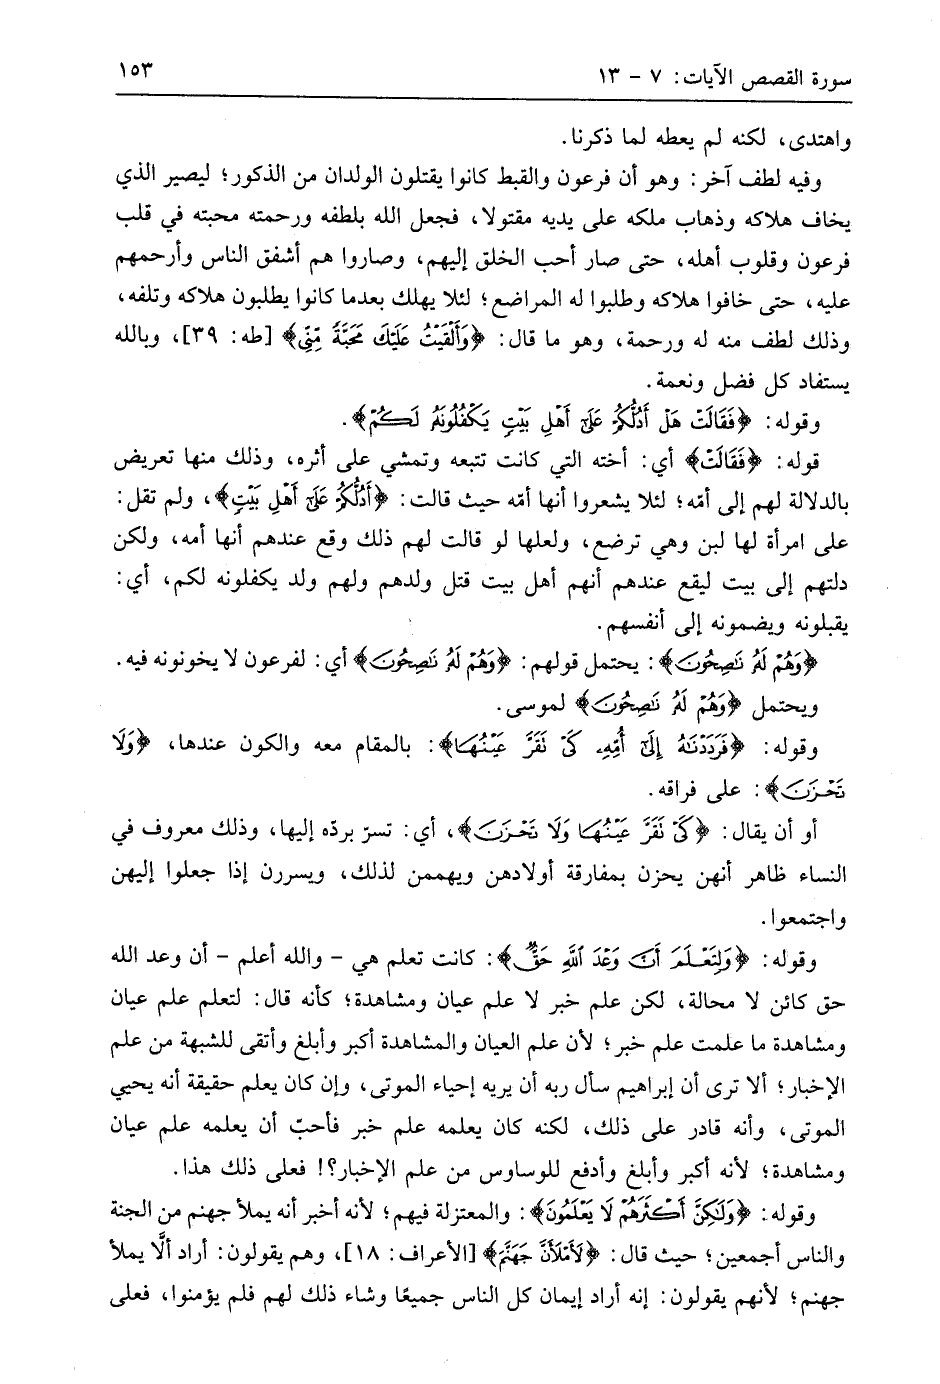 سورة القصص الآيات: ٧ - ١٣ ١٥٣
واهتدى، لكنه لم يعطه لما ذكرنا.
وفيه لطف آخر: وهو أن فرعون والقبط كانوا يقتلون الولدان من الذكور؛ ليصير الذي
يخاف هلاكه وذهاب ملكه على يديه مقتولا، فجعل الله بلطفه ورحمته محبته في قلب
فرعون وقلوب أهله، حتى صار أحب الخلق إليهم، وصاروا هم أشفق الناس وأرحمهم
عليه، حتى خافوا هلاكه وطلبوا له المراضع؛ لئلا يهلك بعدما كانوا يطلبون هلاكه وتلفه،
وذلك لطف منه له ورحمة، وهو ما قال: ﴿وَأَلْقَيْتُ عَلَيْكَ مَحَبَّةً مِّنِّي﴾ [طه: ٣٩]، وبالله
يستفاد كل فضل ونعمة.
وقوله: ﴿فَقَالَتْ هَلْ أَدُلُّكُمْ عَلَىٰ أَهْلِ بَيْتٍ يَكْفُلُونَهُ لَكُمْ﴾.
قوله: ﴿فَقَالَتْ﴾ أي: أخته التي كانت تتبعه وتمشي على أثره، وذلك منها تعريض
بالدلالة لهم إلى أمّه؛ لئلا يشعروا أنها أمّه حيث قالت: ﴿أَدُلُّكُمْ عَلَىٰ أَهْلِ بَيْتٍ﴾، ولم تقل:
على امرأة لها لبن وهي ترضع، ولعلها لو قالت لهم ذلك وقع عندهم أنها أمه، ولكن
دلتهم إلى بيت ليقع عندهم أنهم أهل بيت قتل ولدهم ولهم ولد يكفلونه لكم، أي:
يقبلونه ويضمونه إلى أنفسهم.
﴿وَهُمْ لَهُ نَاصِحُونَ﴾: يحتمل قولهم: ﴿وَهُمْ لَهُ نَاصِحُونَ﴾ أي: لفرعون لا يخونونه فيه.
ويحتمل ﴿وَهُمْ لَهُ نَاصِحُونَ﴾ لموسى.
وقوله: ﴿فَرَدَدْنَاهُ إِلَىٰ أُمِّهِ كَيْ تَقَرَّ عَيْنُهَا﴾: بالمقام معه والكون عندها، ﴿وَلَا
تَحْزَنَ﴾: على فراقه.
أو أن يقال: ﴿كَيْ تَقَرَّ عَيْنُهَا وَلَا تَحْزَنَ﴾، أي: تسرّ بردّه إليها، وذلك معروف في
النساء ظاهر أنهن يحزن بمفارقة أولادهن ويهممن لذلك، ويسررن إذا جعلوا إليهن
واجتمعوا.
وقوله: ﴿وَلِتَعْلَمَ أَنَّ وَعْدَ اللَّهِ حَقٌّ﴾: كانت تعلم هي - والله أعلم - أن وعد الله
حق كائن لا محالة، لكن علم خبر لا علم عيان ومشاهدة؛ كأنه قال: لتعلم علم عيان
ومشاهدة ما علمت علم خبر؛ لأن علم العيان والمشاهدة أكبر وأبلغ وأتقى للشبهة من علم
الإخبار؛ ألا ترى أن إبراهيم سأل ربه أن يريه إحياء الموتى، وإن كان يعلم حقيقة أنه يحيي
الموتى، وأنه قادر على ذلك، لكنه كان يعلمه علم خبر فأحبّ أن يعلمه علم عيان
ومشاهدة؛ لأنه أكبر وأبلغ وأدفع للوساوس من علم الإخبار؟! فعلى ذلك هذا.
وقوله: ﴿وَلَٰكِنَّ أَكْثَرَهُمْ لَا يَعْلَمُونَ﴾: والمعتزلة فيهم؛ لأنه أخبر أنه يملأ جهنم من الجنة
والناس أجمعين؛ حيث قال: ﴿لَأَمْلَأَنَّ جَهَنَّمَ﴾ [الأعراف: ١٨]، وهم يقولون: أراد ألَّا يملأ
جهنم؛ لأنهم يقولون: إنه أراد إيمان كل الناس جميعًا وشاء ذلك لهم فلم يؤمنوا، فعلى